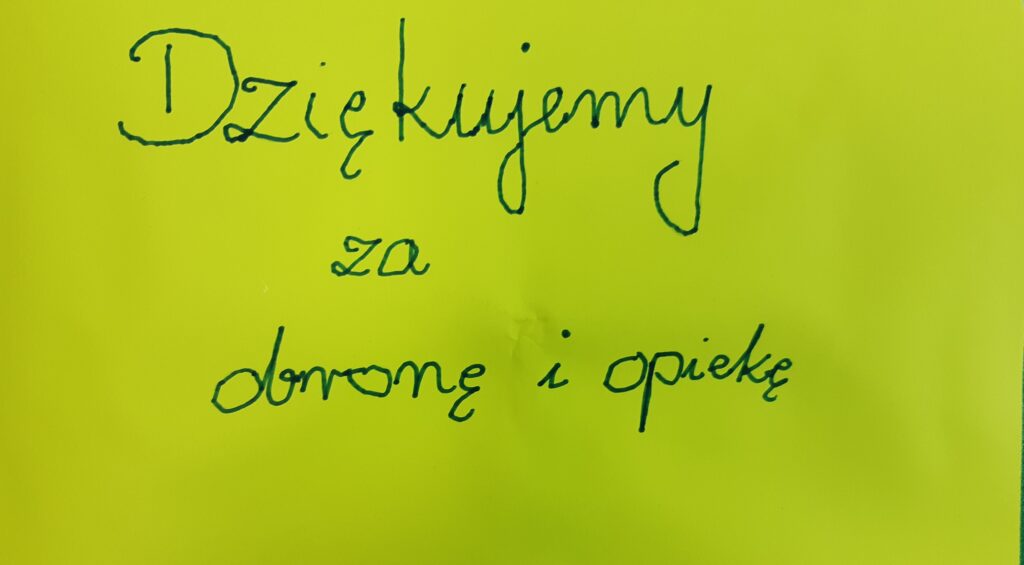 Dziękujemy
za
obronę i opiekę